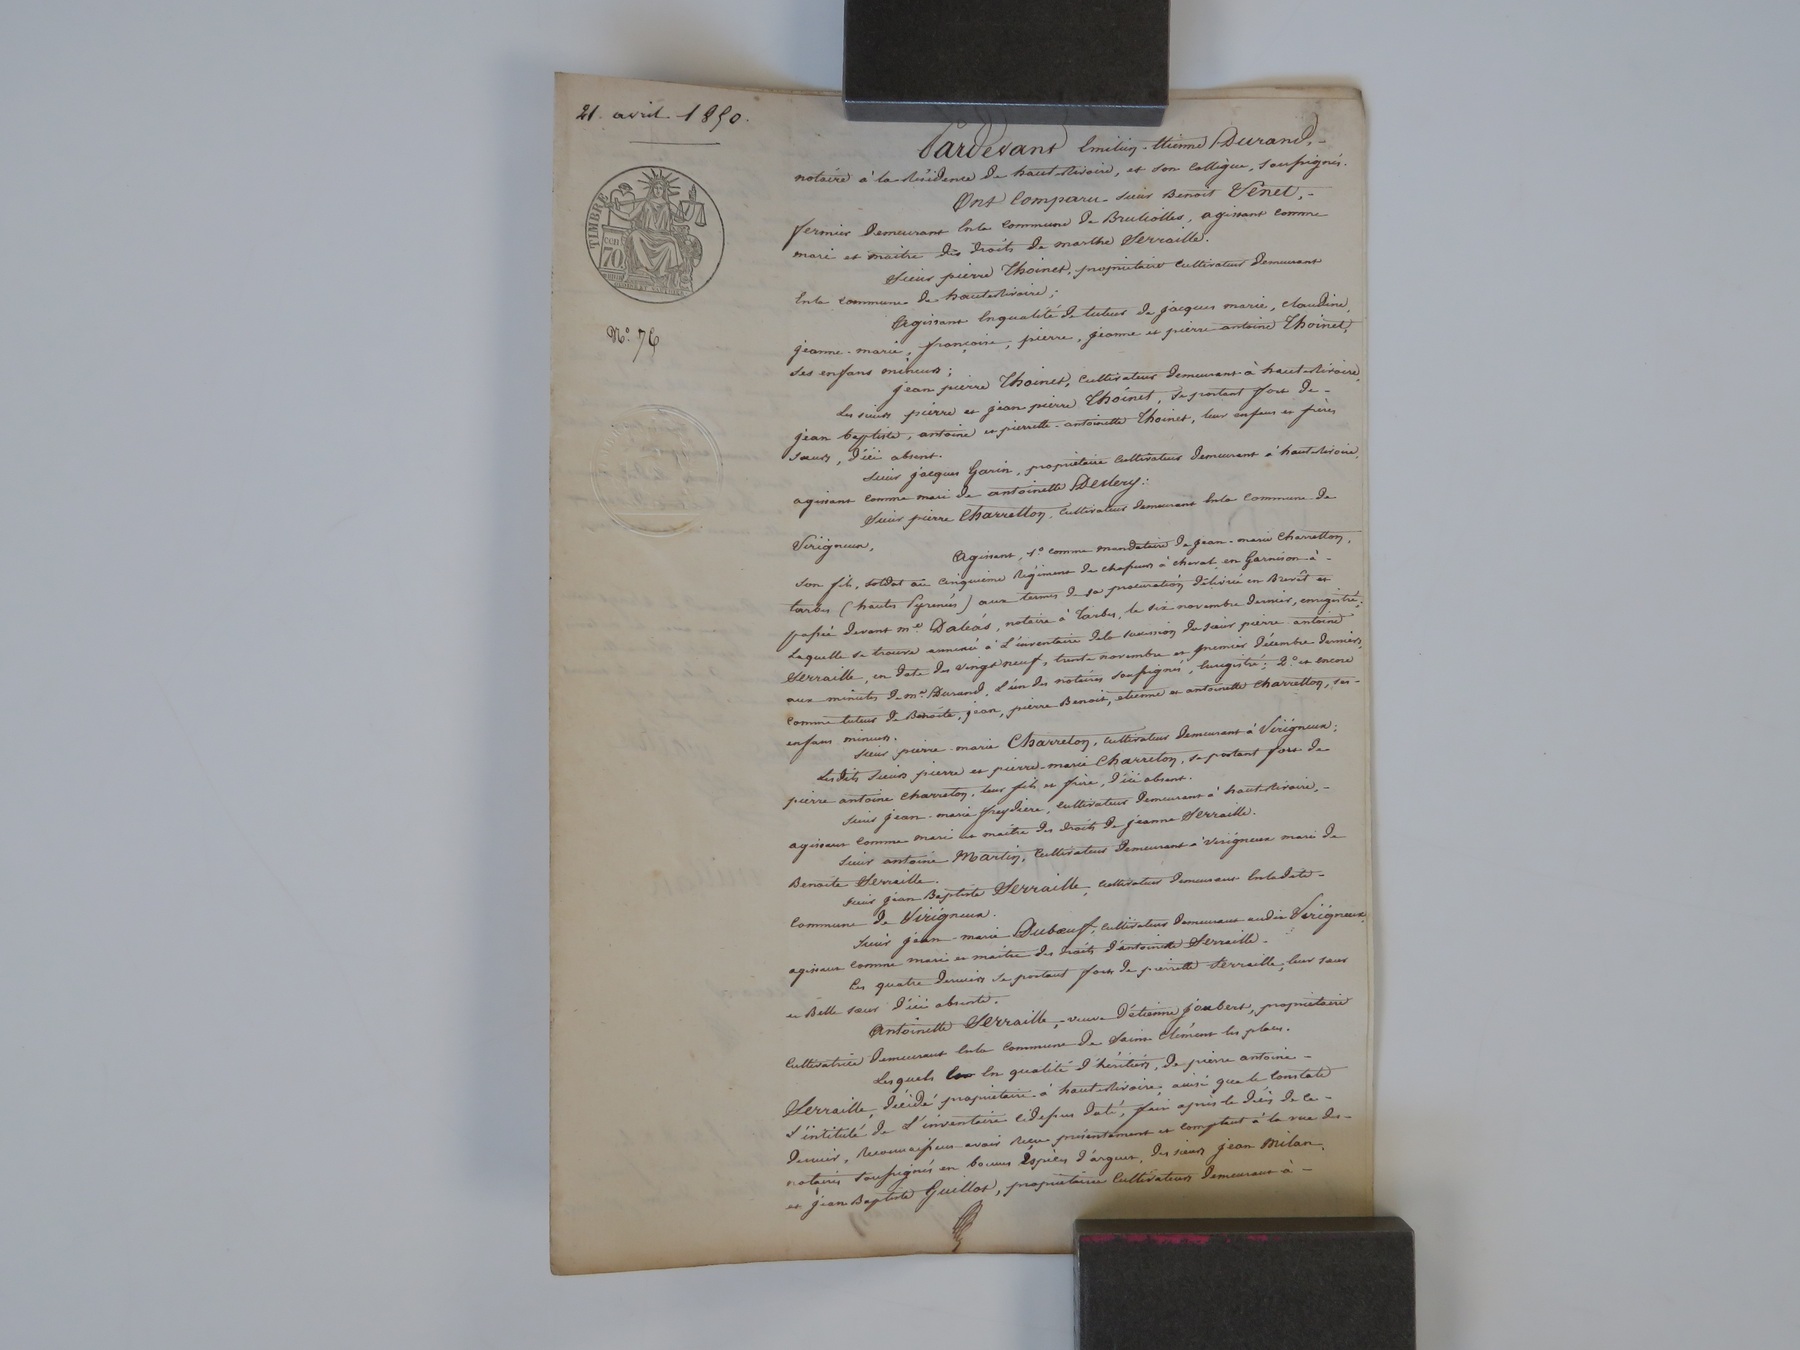 21. avril 1850.
TIMBRE
70
N.º 76
Pardevant Emilien-Etienne Durand,-
notaire à la Résidence de haut-Rivoire, et son Collègue, soussignés.
Ont Comparu. Sieur Benoit Venet,-
fermier demeurant Enla Commune de Brulliolles, agissant comme
mari et maitre des droits de marthe Serraille.
Sieur pierre Thoinet, propriétaire cultivateur demeurant
Enla commune de haut-Rivoire;
Agissant Enqualité de tuteur de jacques marie, claudine,
jeanne-marie, françoise, pierre, jeanne et pierre antoine Thoinet,
ses enfans mineurs;
jean pierre Thoinet, cultivateur demeurant à haut-Rivoire,
Les sieurs pierre et jean pierre Thoinet, se portant fort de-
jean baptiste, antoine et pierrette-antoinette Thoinet, leur enfans et frères
sœurs, d'ici absent.
Sieur jacques Garin, propriétaire cultivateur demeurant à haut-Rivoire,
agissant comme mari de antoinette Deslery:
Sieur pierre Charretton, cultivateur demeurant Enla Commune de
Virigneux,
Agissant, 1º comme mandataire de jean-marie Charretton,
son fils, soldat au cinquième Régiment de chasseurs à cheval en Garnison à-
tarbes (hautes Pyrenées) aux termes de sa procuration délivrée en Brevêt et
passée devant m.e Daléas, notaire à Tarbes, le six novembre dernier, enregistré;
Laquelle se trouve annexée à L'inventaire dela succession du sieur pierre antoine
Serraille, en date des vingt neuf, trente novembre et premier décembre derniers,
aux minutes de m.e Durand, L'un des notaires soussignés, Enregistré; 2.º et encore
comme tuteur de Benoite, jean, pierre Benoit, etienne et antoinette Charretton, ses-
enfans mineurs.
Sieur pierre-marie Charreton, cultivateur demeurant à Virigneux;
Lesdits sieurs pierre et pierre-marie Charreton, se portant fort de
pierre antoine Charreton, leur fils et frère, d'ici absent.
Sieur jean-marie freydiere, cultivateur demeurant à haut-Rivoire,-
agissant comme mari et maitre des droits de jeanne Serraille.
Sieur antoine Martin, cultivateur demeurant à Virigneux mari de
Benoite Serraille.
Sieur jean Baptiste Serraille, cultivateur demeurant Enladite-
Commune de Virigneux.
Sieur jean-marie Dubœuf, cultivateur demeurant audit Virigneux,
agissant comme mari et maitre des droits d'antoinette Serraille-
Les quatre derniers se portant forts de pierrette Serraille, leur sœur
et Belle sœur d'ici absente.
Antoinette Serraille, veuve D'étienne joubert, propriétaire
Cultivatrice demeurant Enla Commune de Saint Clément les places.
Lesquels En qualité d'héritiers, de pierre antoine-
Serraille, décédé propriétaire à haut-Rivoire, ainsi que le Constate
L'intitulé de L'inventaire cidessus daté, fait après le décès de ce-
dernier, Reconnaissent avoir Reçu présentement et comptant à la vue des-
notaires soussignés en bonnes Espèces d'argent, des sieurs jean Milan
et jean Baptiste Guillot, propriétaires Cultivateurs demeurant à-